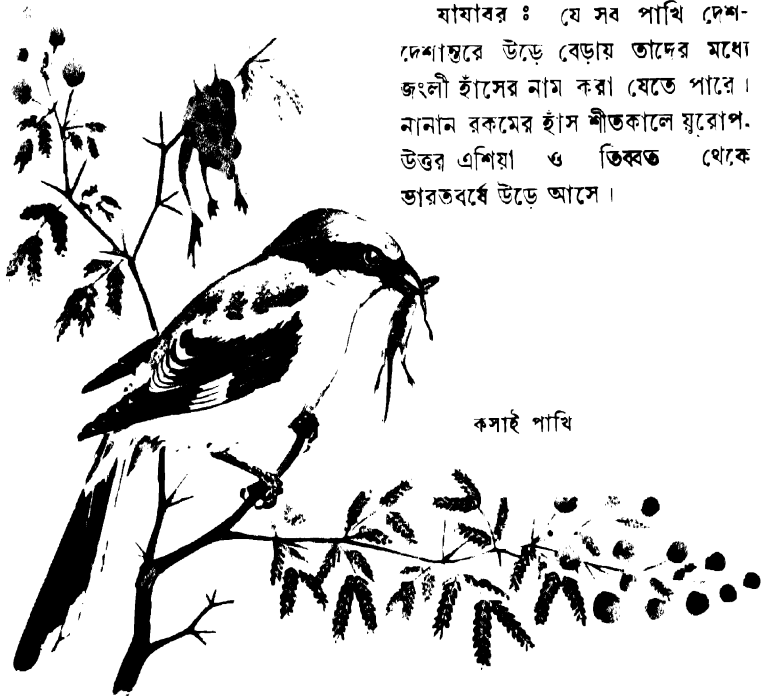 যাযাবর : যে সব পাখি দেশ-
দেশান্তরে উড়ে বেড়ায় তাদের মধ্যে
জংলী হাঁসের নাম করা যেতে পারে।
নানান রকমের হাঁস শীতকালে য়ুরোপ-
উত্তর এশিয়া ও তিব্বত থেকে
ভারতবর্ষে উড়ে আসে।
কসাই পাখি